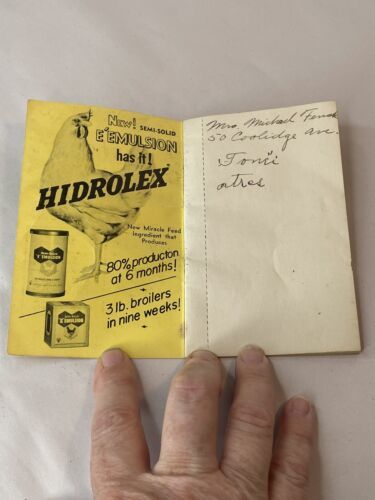 New! SEMI-SOLID
E'EMULSION
has it!
HIDROLEX
New Miracle Feed
Ingredient that
Produces
80% producton
at 6 months!
3 lb. broilers
in nine weeks!
"E" EMULSION
EMULSION
Mrs. Michael
50 Coolidge Ave.